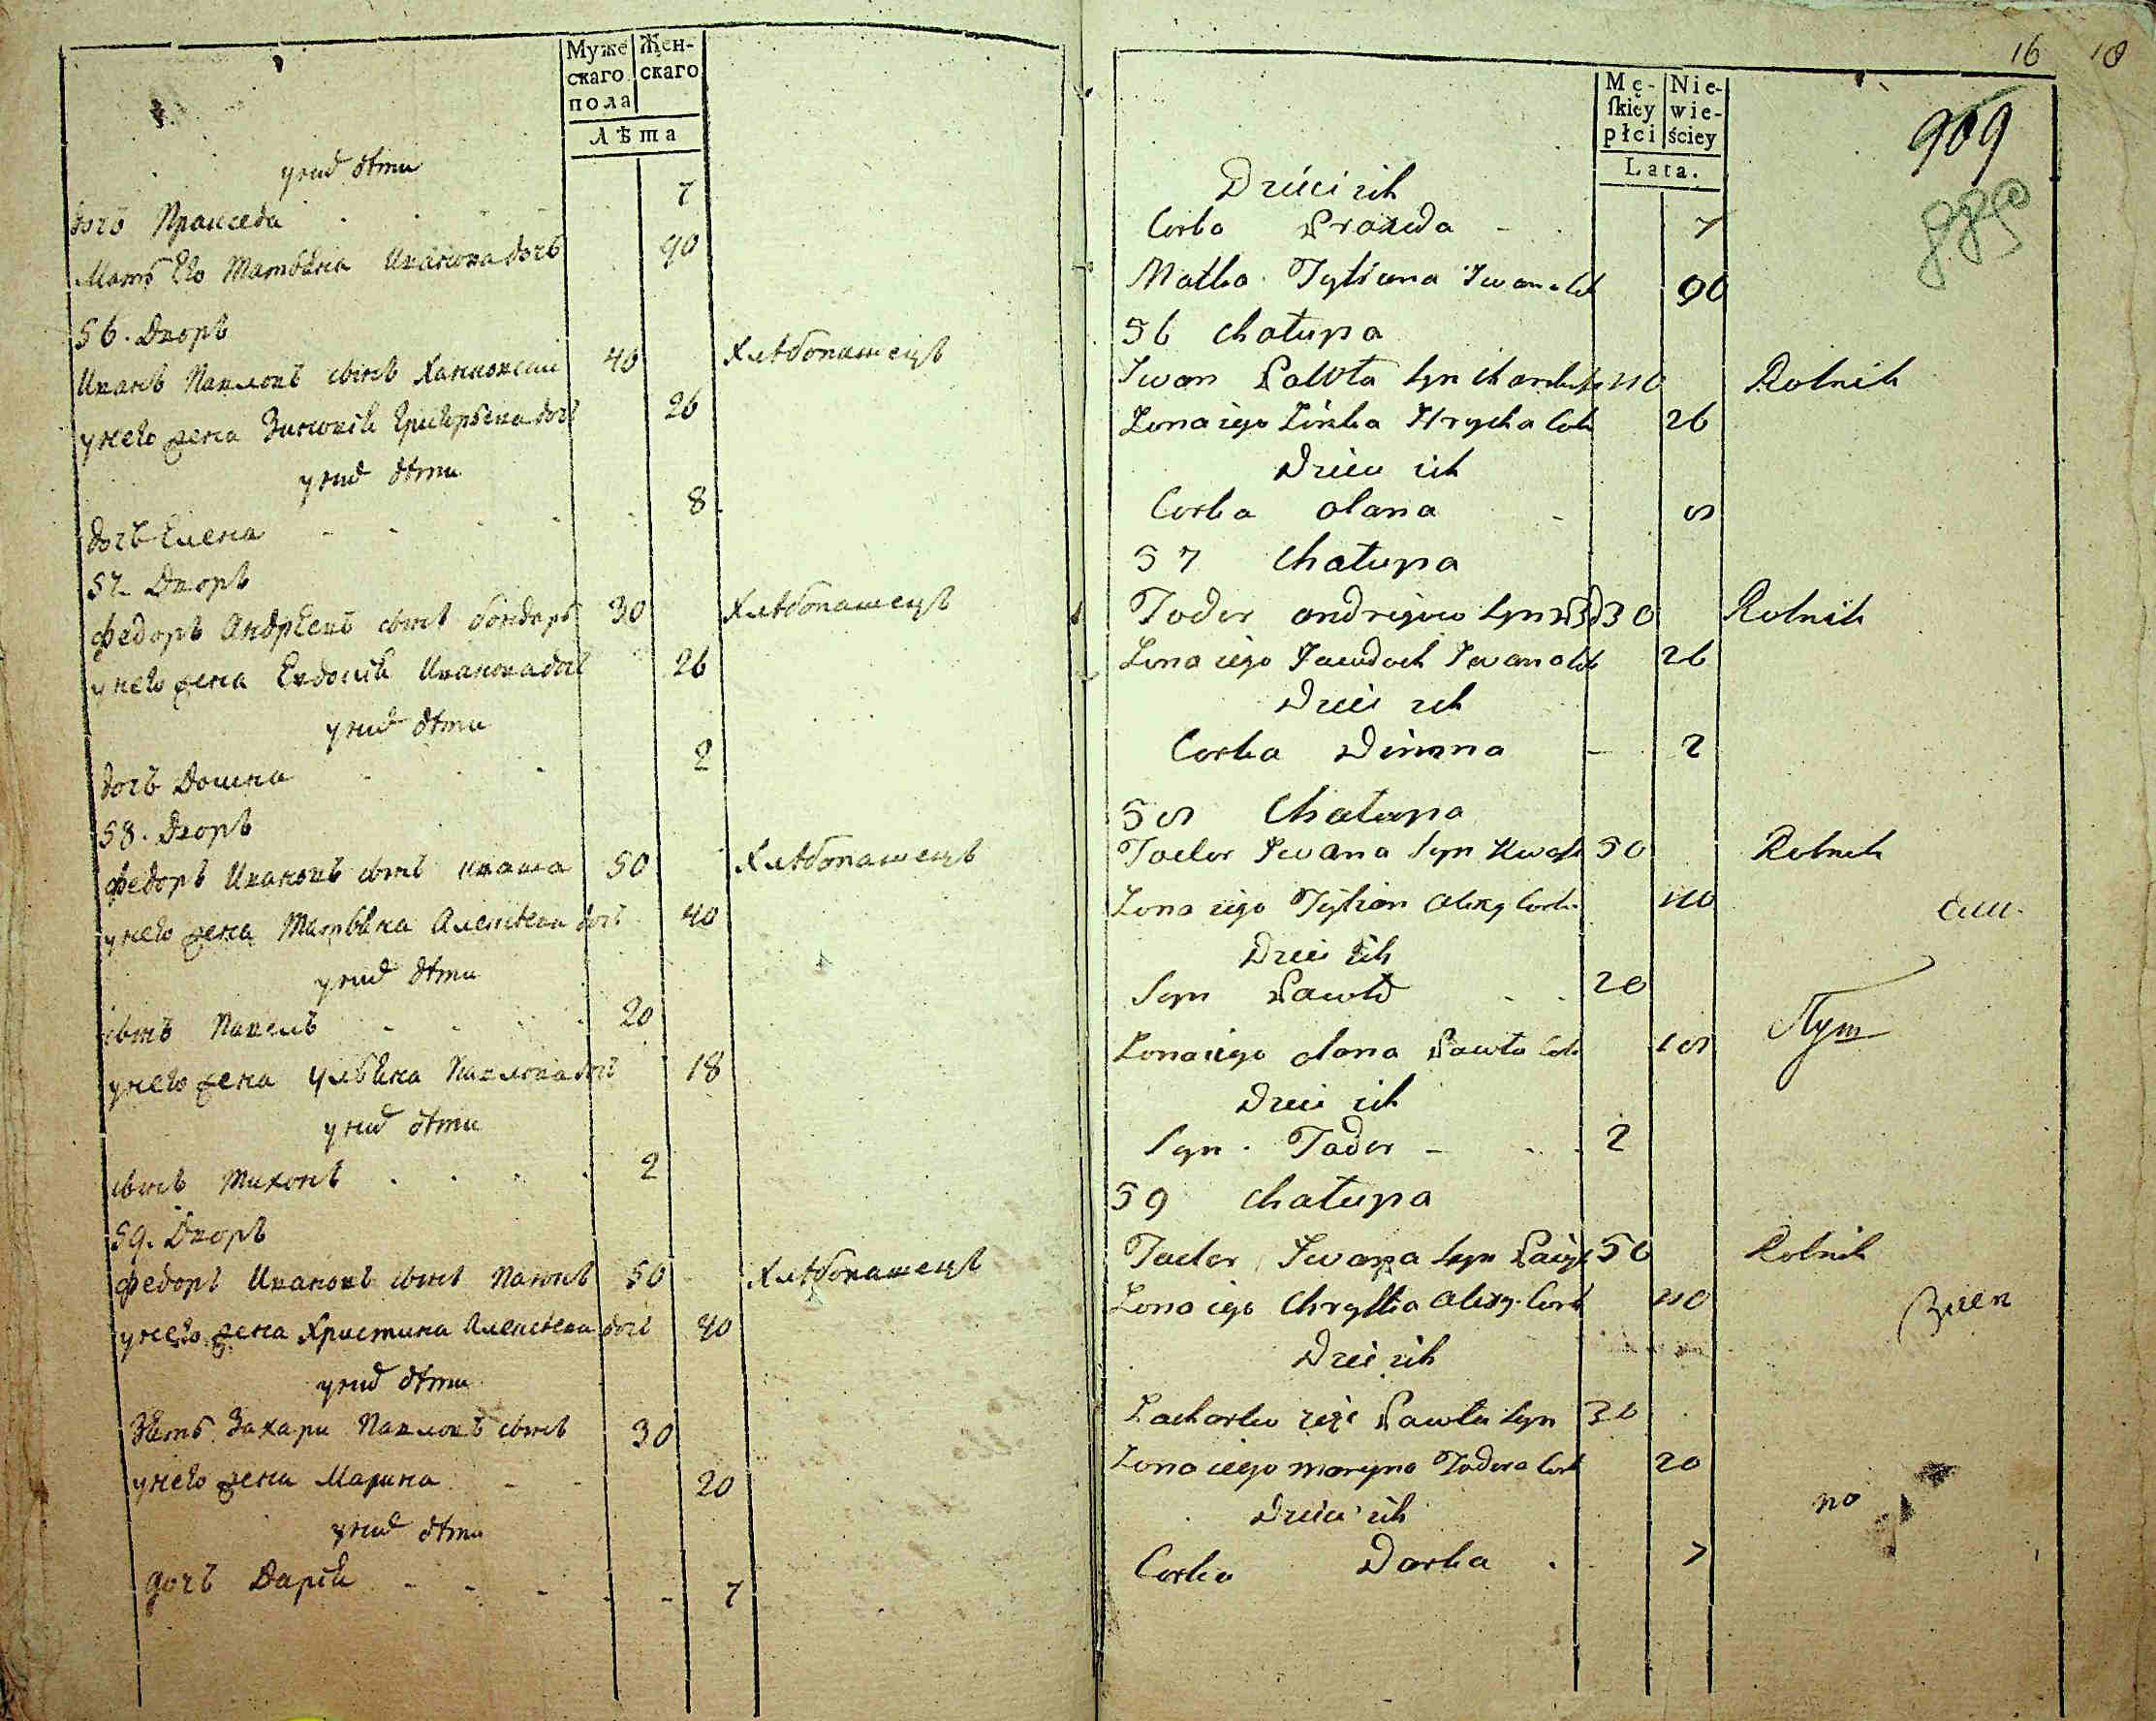 Муже скаго пола
Жен- скаго
Лѣта
у них дѣти
дочь Праиседа 7
Мать Его Татьяна Иванова дочь 90
56. Дворъ
Иванъ Павловъ сынъ 40 Хлѣбопашецъ
у него жена Зиновия Григорьева дочь 26
у них дѣти
дочь Елена 8
57. Дворъ
Федоръ Андрѣевъ сынъ бондарь 30 Хлѣбопашецъ
у него жена Евдокия Иванова дочь 26
у них дѣти
дочь Домна 2
58. Дворъ
Федоръ Ивановъ сынъ кваша 50 Хлѣбопашецъ
у него жена Татьяна Алексѣева дочь 40
у них дѣти
сынъ Павелъ 20
у него жена Ульяна Павлова дочь 18
у них дѣти
сынъ Тихонъ 2
59. Дворъ
Федоръ Ивановъ сынъ 50 Хлѣбопашецъ
у него жена Христина Алексѣева дочь 40
у них дѣти
Зять Захари Павловъ сынъ 30
у него жена Марина 20
у них дѣти
дочь Дария 7
16 18
Mę- ſkiey płci
Nie- wie- ściey
Lata.
909
Dzieci ich
Corka Praxeda 7
Matka Tytiana Iwana 90
56 chałupa
Iwan Pawła Syn 40 Rolnik
Zona iego Zinka Hrycka Cork 26
Dzieci ich
Corka Olana 8
57 Chałupa
Todor Andrejow Syn 30 Rolnik
Zona iego Jawdoch Iwana 26
Dzieci ich
Corka Dimna 2
58 Chałupa
Todor Iwana Syn Kwasz 50 Rolnik
Zona iego Tytian Alexy Cork 40
Dzieci ich
Syn Pawło 20
Zona iego Olana Pawła Cork 18
Dzieci ich
Syn Todor 2
59 chałupa
Todor Iwana Syn 50 Rolnik
Zona iego Chrystka Alexy Cork 40
Dzieci ich
Zacharko zięć Pawła Syn 30
Zona iego Maryna Todora Cork 20
Dzieci ich
Corka Darka 7